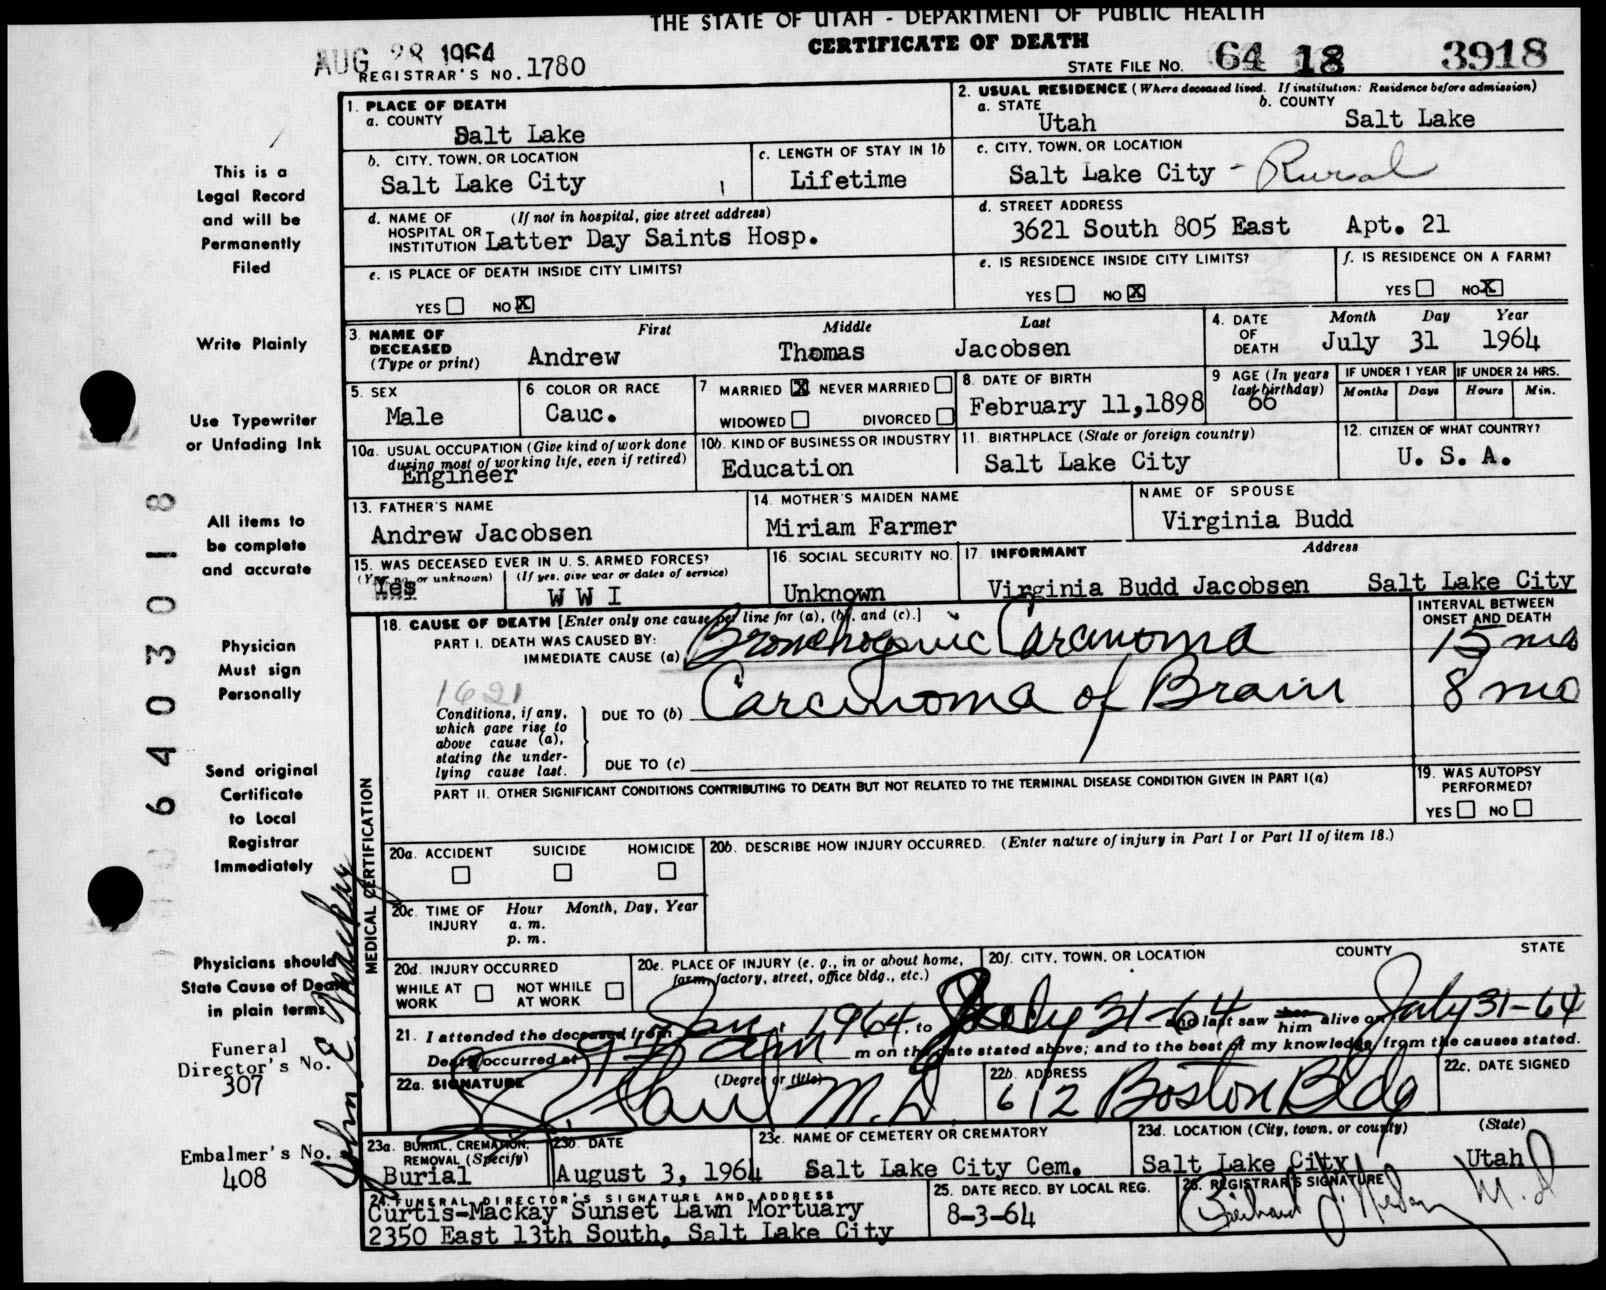 THE STATE OF UTAH - DEPARTMENT OF PUBLIC HEALTH
CERTIFICATE OF DEATH
AUG 28 1964
REGISTRAR'S NO. 1780
STATE FILE NO. 64 18 3918
This is a
Legal Record
and will be
Permanently
Filed
Write Plainly
Use Typewriter
or Unfading Ink
All items to
be complete
and accurate
Physician
Must sign
Personally
Send original
Certificate
to Local
Registrar
Immediately
Physicians should
State Cause of Death
in plain terms
Funeral
Director's No.
307
Embalmer's No.
408
6403018
John E Mackay
1. PLACE OF DEATH
a. COUNTY
Salt Lake
2. USUAL RESIDENCE (Where deceased lived. If institution: Residence before admission)
a. STATE
Utah
b. COUNTY
Salt Lake
b. CITY, TOWN, OR LOCATION
Salt Lake City
c. LENGTH OF STAY IN 1b
Lifetime
c. CITY, TOWN, OR LOCATION
Salt Lake City - Rural
d. NAME OF (If not in hospital, give street address)
HOSPITAL OR
INSTITUTION Latter Day Saints Hosp.
d. STREET ADDRESS
3621 South 805 East Apt. 21
e. IS PLACE OF DEATH INSIDE CITY LIMITS?
YES NO X
e. IS RESIDENCE INSIDE CITY LIMITS?
YES NO X
f. IS RESIDENCE ON A FARM?
YES NO X
3. NAME OF
DECEASED
(Type or print)
First Middle Last
Andrew Thomas Jacobsen
4. DATE
OF
DEATH
Month Day Year
July 31 1964
5. SEX
Male
6 COLOR OR RACE
Cauc.
7. MARRIED X NEVER MARRIED
WIDOWED DIVORCED
8. DATE OF BIRTH
February 11,1898
9 AGE (In years
last birthday)
66
IF UNDER 1 YEAR
Months Days
IF UNDER 24 HRS.
Hours Min.
10a. USUAL OCCUPATION (Give kind of work done
during most of working life, even if retired)
Engineer
10b. KIND OF BUSINESS OR INDUSTRY
Education
11. BIRTHPLACE (State or foreign country)
Salt Lake City
12. CITIZEN OF WHAT COUNTRY?
U. S. A.
13. FATHER'S NAME
Andrew Jacobsen
14. MOTHER'S MAIDEN NAME
Miriam Farmer
NAME OF SPOUSE
Virginia Budd
15. WAS DECEASED EVER IN U. S. ARMED FORCES?
(Yes, no, or unknown) (If yes, give war or dates of service)
Yes W W I
16. SOCIAL SECURITY NO.
Unknown
17. INFORMANT Address
Virginia Budd Jacobsen Salt Lake City
MEDICAL CERTIFICATION
18. CAUSE OF DEATH [Enter only one cause per line for (a), (b), and (c).]
INTERVAL BETWEEN
ONSET AND DEATH
PART I. DEATH WAS CAUSED BY:
IMMEDIATE CAUSE (a) Bronchogenic Carcinoma 15 mo
1621
Conditions, if any,
which gave rise to
above cause (a),
stating the under-
lying cause last.
DUE TO (b) Carcinoma of Brain 8 mo
DUE TO (c)
PART II. OTHER SIGNIFICANT CONDITIONS CONTRIBUTING TO DEATH BUT NOT RELATED TO THE TERMINAL DISEASE CONDITION GIVEN IN PART I(a)
19. WAS AUTOPSY
PERFORMED?
YES NO
20a. ACCIDENT SUICIDE HOMICIDE
20b. DESCRIBE HOW INJURY OCCURRED. (Enter nature of injury in Part I or Part II of item 18.)
20c. TIME OF
INJURY
Hour Month, Day, Year
a. m.
p. m.
20d. INJURY OCCURRED
WHILE AT
WORK
NOT WHILE
AT WORK
20e. PLACE OF INJURY (e. g., in or about home,
farm, factory, street, office bldg., etc.)
20f. CITY, TOWN, OR LOCATION COUNTY STATE
21. I attended the deceased from Jan 1964, to July 31-64 and last saw her him alive on July 31-64
Death occurred at m on the date stated above; and to the best of my knowledge, from the causes stated.
22a. SIGNATURE (Degree or title)
M.D
22b. ADDRESS
612 Boston Bldg
22c. DATE SIGNED
23a. BURIAL, CREMATION,
REMOVAL (Specify)
Burial
23b. DATE
August 3, 1964
23c. NAME OF CEMETERY OR CREMATORY
Salt Lake City Cem.
23d. LOCATION (City, town, or county) (State)
Salt Lake City Utah
24. FUNERAL DIRECTOR'S SIGNATURE AND ADDRESS
Curtis-Mackay Sunset Lawn Mortuary
2350 East 13th South, Salt Lake City
25. DATE RECD. BY LOCAL REG.
8-3-64
26. REGISTRAR'S SIGNATURE
M.D